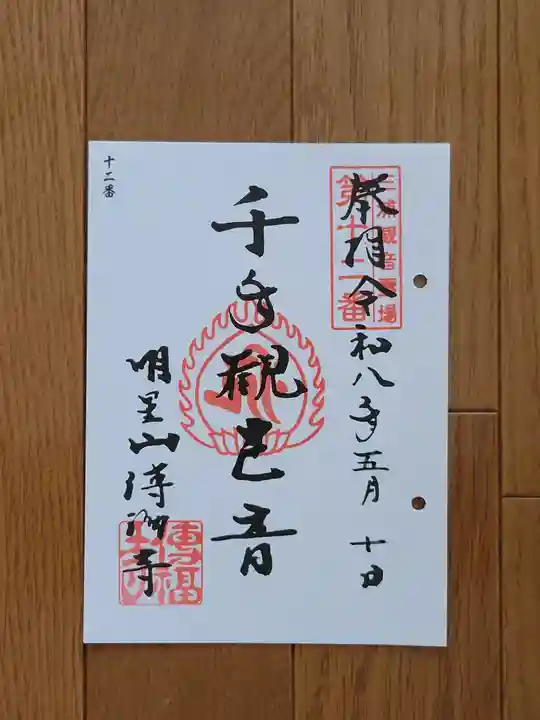 三浦観音霊場
第十二番
奉拝 令和八年五月十日
千手觀世音
明星山傳福寺
十二番